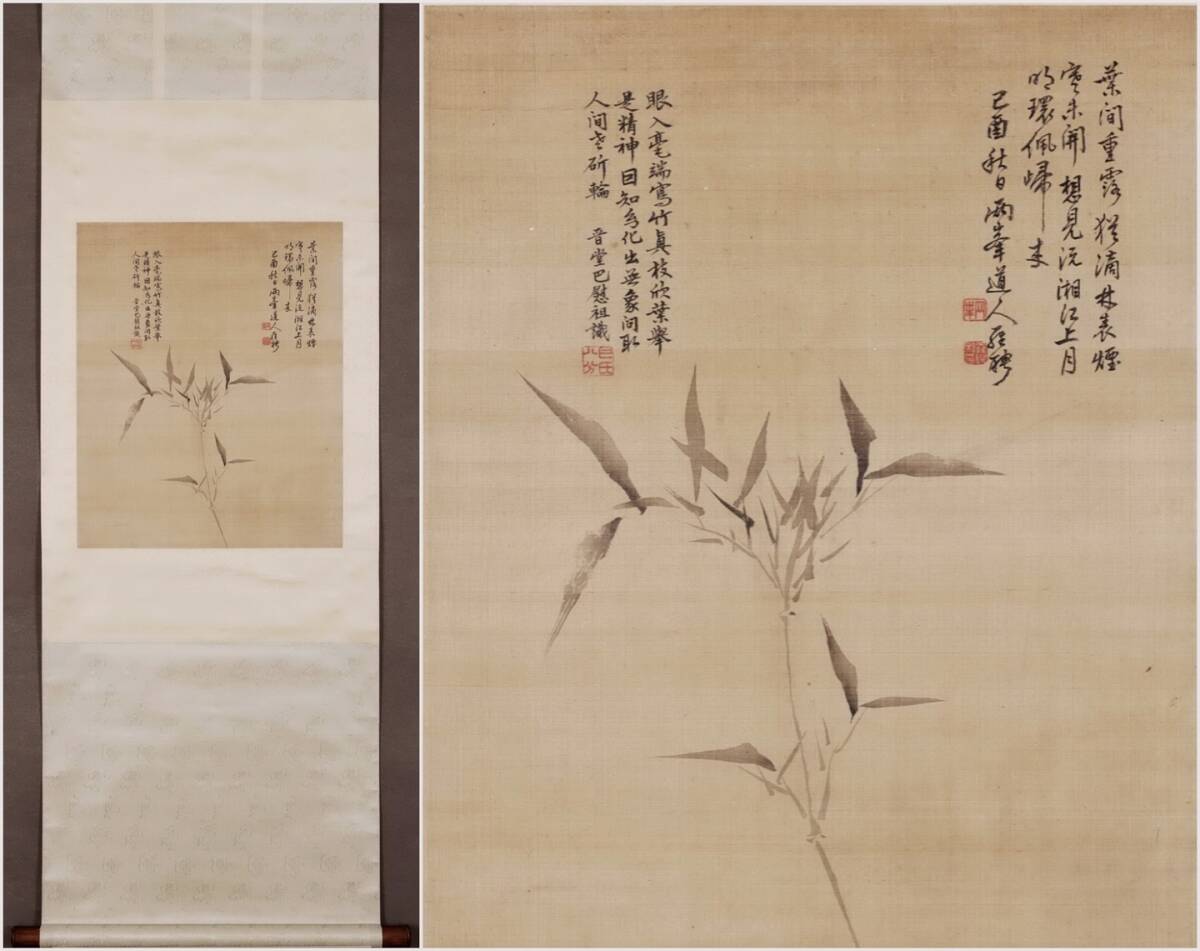 葉間重露猶滴林表煙
霏未開想見沅湘江上月
明環佩歸来
己酉秋日兩峯道人羅聘
眼入毫端寫竹真枝欣葉舉
是精神因知幻化出無象問取
人間老斫輪 晋堂巴慰祖識
巴氏八分